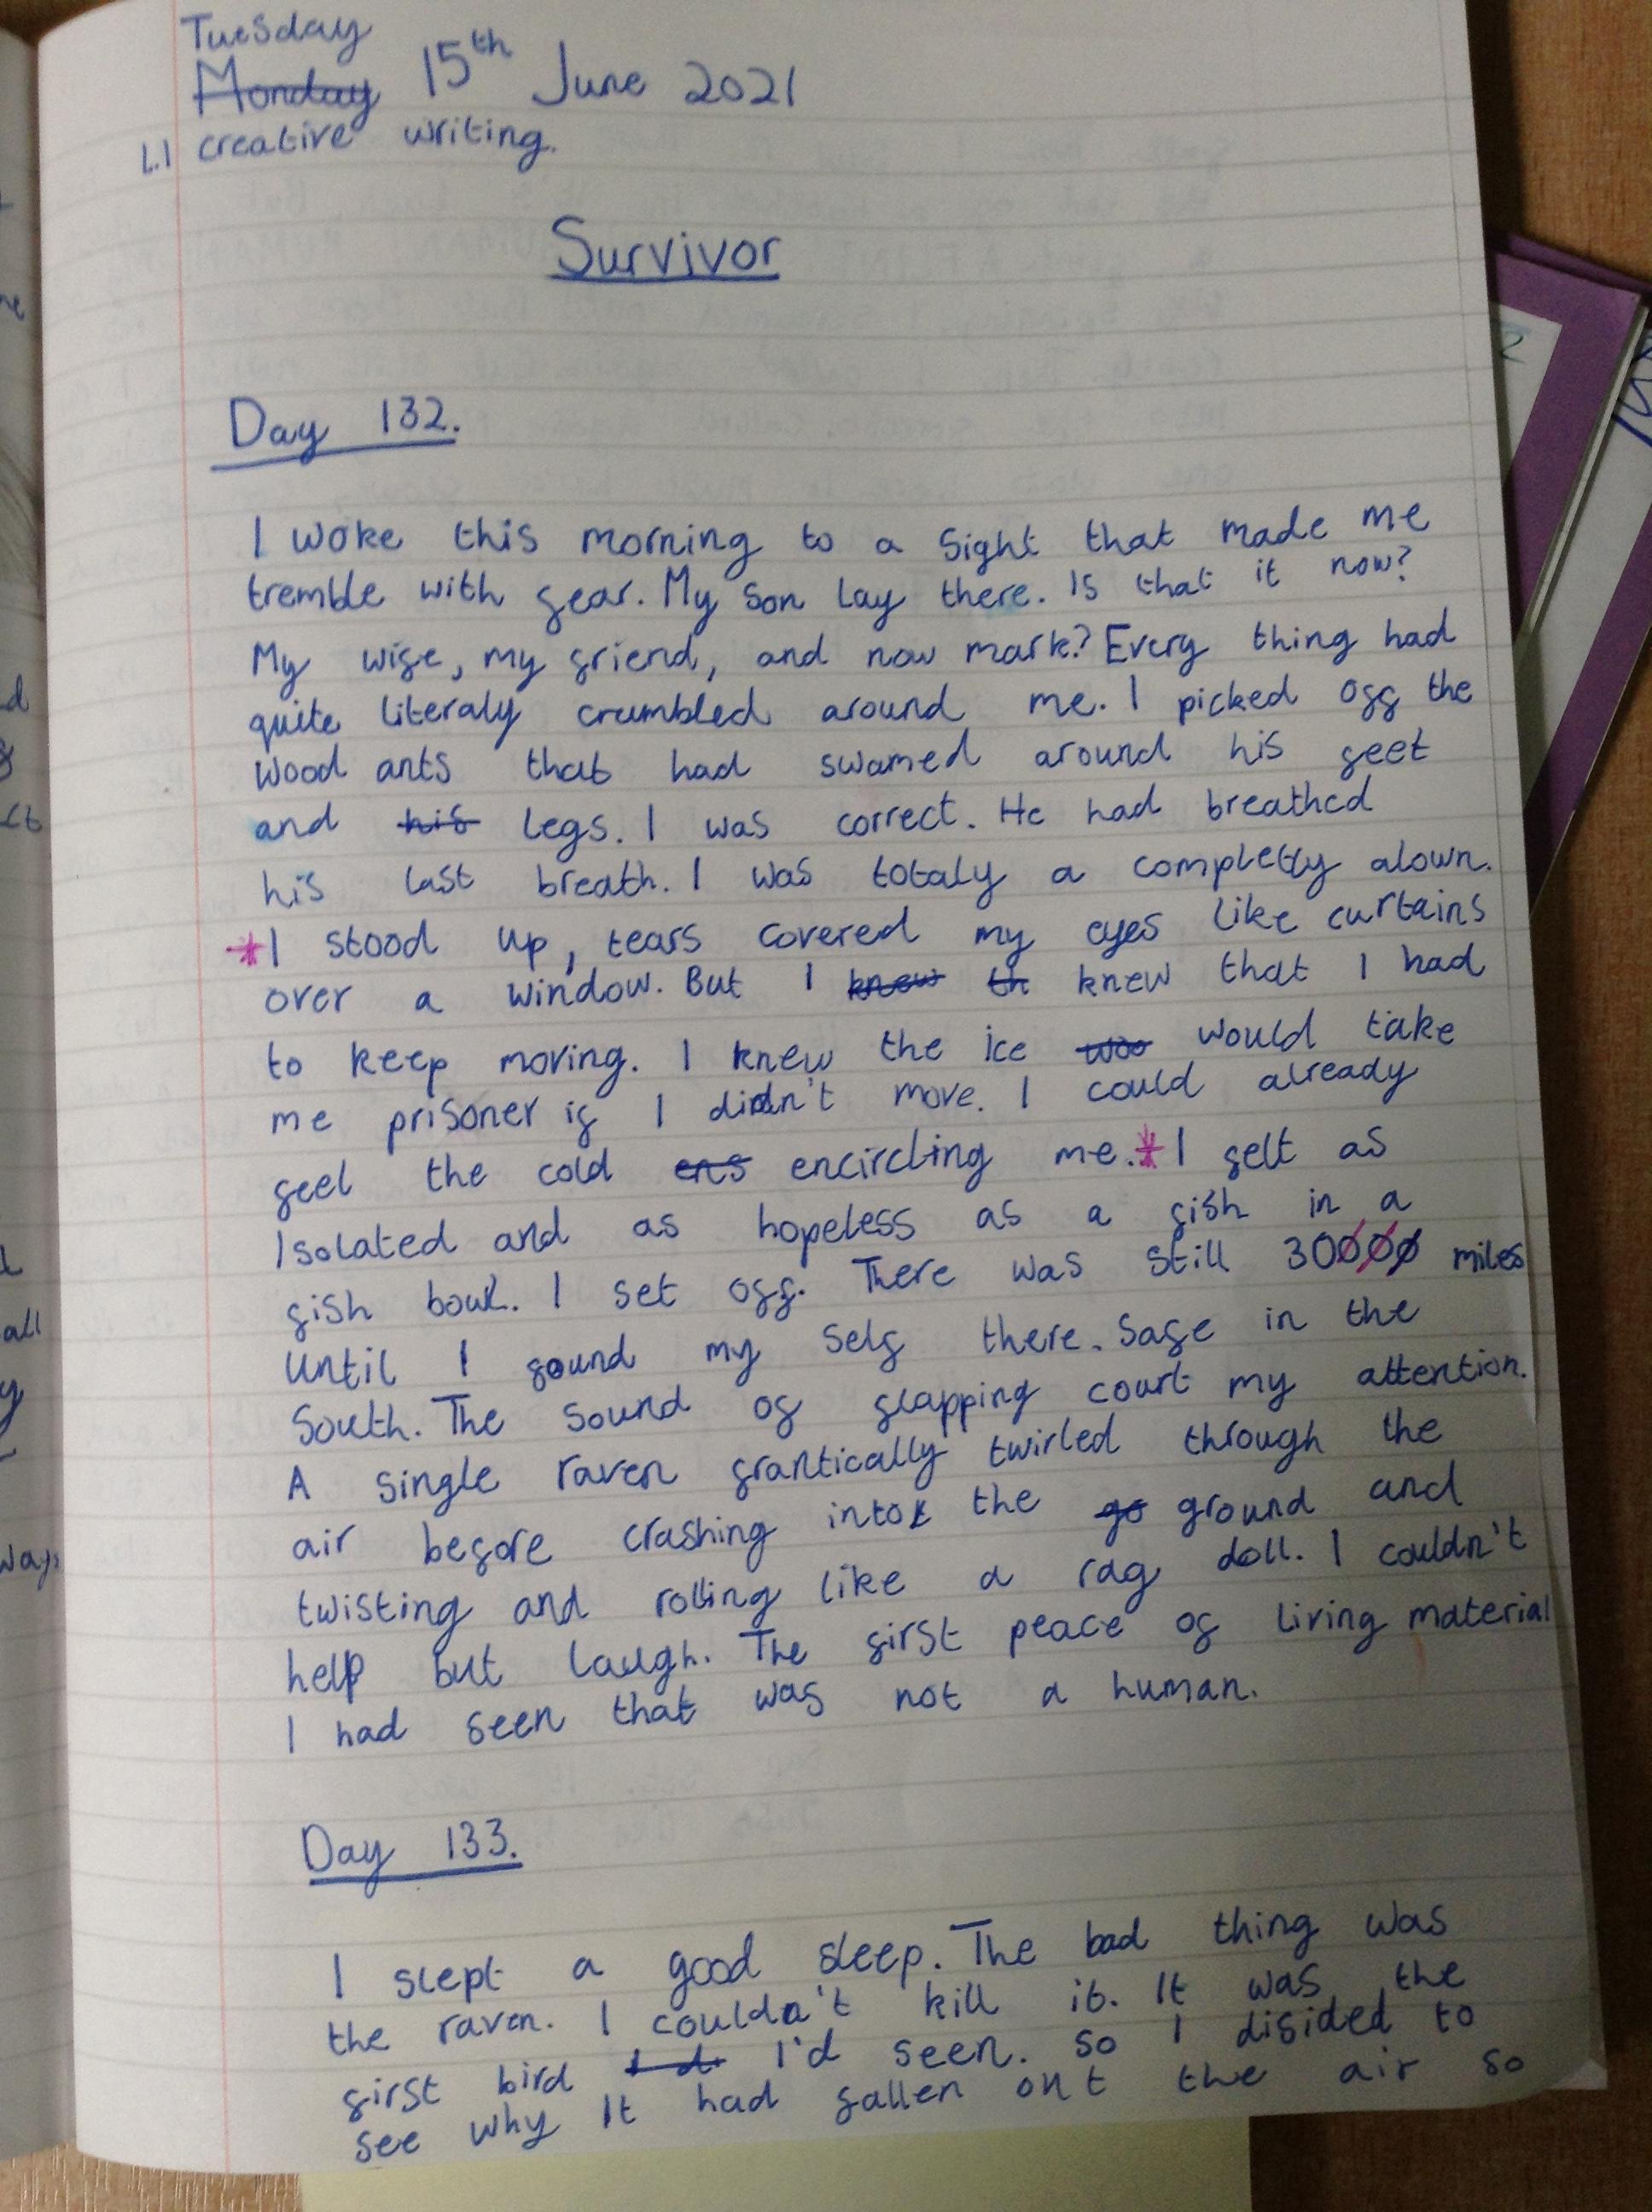 Tuesday
~~Monday~~ 15th June 2021
L.I creative writing.
Survivor
Day 132.
I woke this morning to a sight that made me
tremble with fear. My son lay there. Is that it now?
My wife, my friend, and now mark? Every thing had
quite literaly crumbled around me. I picked off the
wood ants that had swamed around his feet
and ~~his~~ legs. I was correct. He had breathed
his last breath. I was totaly a completly alown.
*I stood up, tears covered my eyes like curtains
over a window. But I ~~knew~~ ~~th~~ knew that I had
to keep moving. I knew the ice ~~woo~~ would take
me prisoner if I didn't move. I could already
feel the cold ~~ens~~ encircling me.* I felt as
Isolated and as hopeless as a fish in a
fish boul. I set off. There was still 30~~000~~ miles
until I found my self there. Safe in the
South. The sound of flapping court my attention.
A single raven frantically twirled through the
air before crashing into the ~~go~~ ground and
twisting and rolling like a rag doll. I couldn't
help but laugh. The first peace of living material
I had seen that was not a human.
Day 133.
I slept a good sleep. The bad thing was
the raven. I couldn't kill it. It was the
first bird ~~I d~~ I'd seen. So I disided to
see why It had fallen out the air so